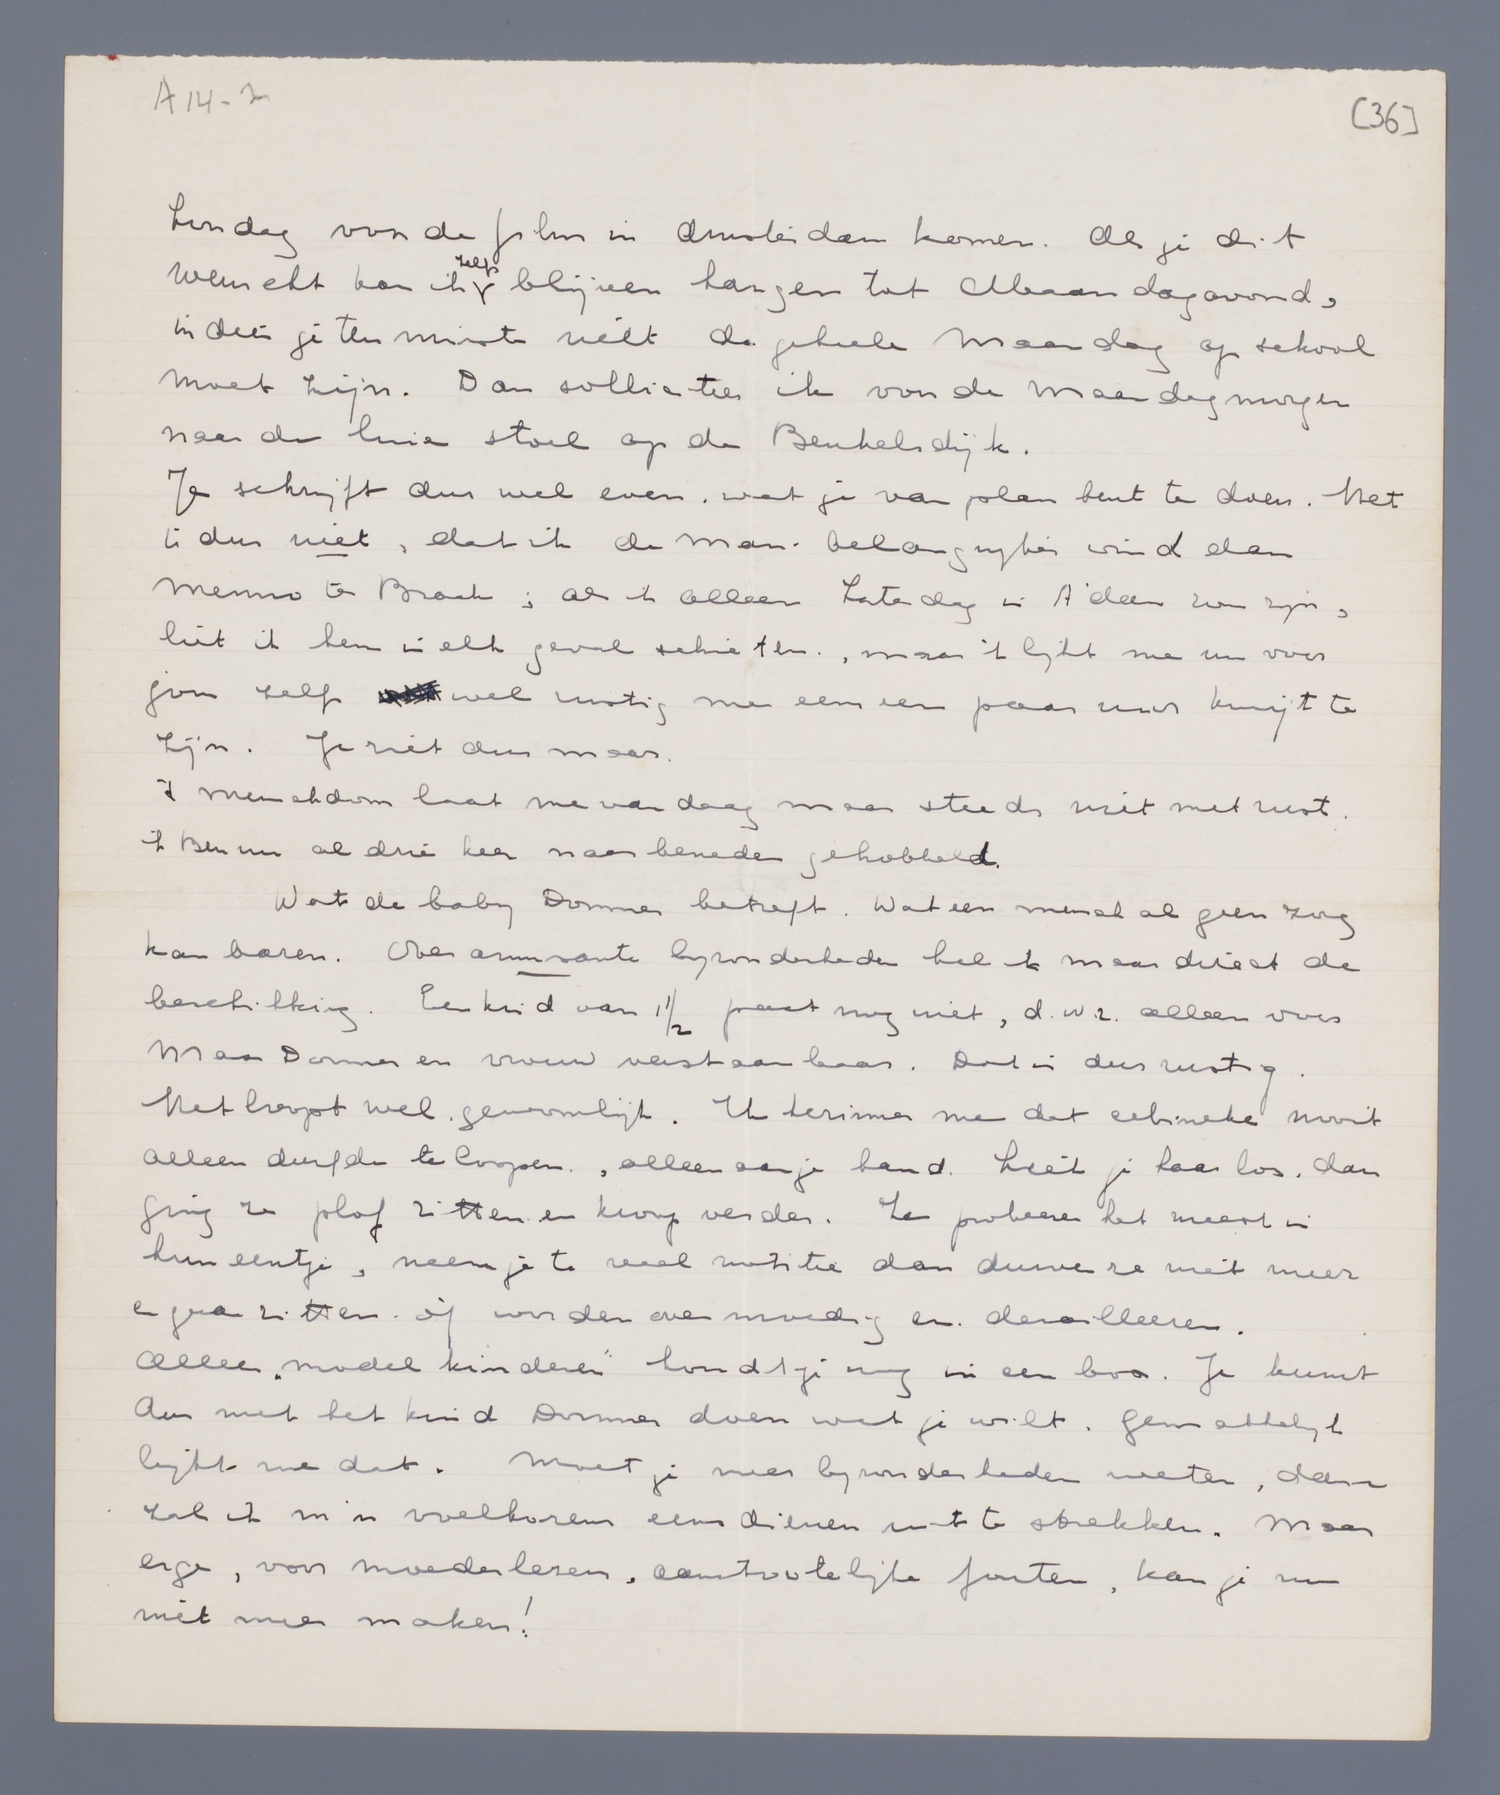 A 14-2
[36]
Zondag voor de film in Amsterdam komen. Als je dit
wenscht kan ik zelfs blijven hangen tot Maandagavond,
indien je tenminste niet de geheele Maandag op school
moet zijn. Dan solliciteer ik voor de Maandagmorgen
naar de luie stoel op de Beukelsdijk.
Je schrijft dus wel even, wat je van plan bent te doen. Het
is dus niet, dat ik de Mar. belangrijker vind dan
Menno te Braak; als ik alleen Zaterdag in A'dam zou zijn,
liet ik hem in elk geval schieten, maar 't lijkt me nu voor
jou zelf wel rustig me eens een paar uur kwijt te
zijn. Je ziet dus maar.
't menschdom laat me vandaag maar steeds niet met rust.
ik Ben nu al drie keer naar beneden gehobbeld.
Wat de baby Donner betreft. Wat een mensch al geen zorg
kan baren. Over amusante bijzonderheden heb ik maar direct de
beschikking. Een kind van 1 1/2 praat nog niet, d.w.z. alleen voor
Max Donner en vrouw verstaanbaar. Dat is dus rustig.
Het loopt wel gewoonlijk. Ik herinner me dat
alleen durfde te loopen, alleen aan je hand. Liet je haar los, dan
ging ze plof zitten en kroop verder. Ze probeeren het meest in
hun eentje, neem je te veel notitie dan durven ze niet meer
en gaan zitten. òf worden overmoedig en derailleeren.
Alleen „model kinderen" houdt je nog in een box. Je kunt
dus met het kind Donner doen wat je wilt. Gemakkelijk
lijkt me dat. Moet je meer bijzonderheden weten, dan
zal ik m'n voelhorens eens dienen uit te strekken. Maar
erge, voor moederlezers, aanstootelijke fouten, kan je nu
niet meer maken!